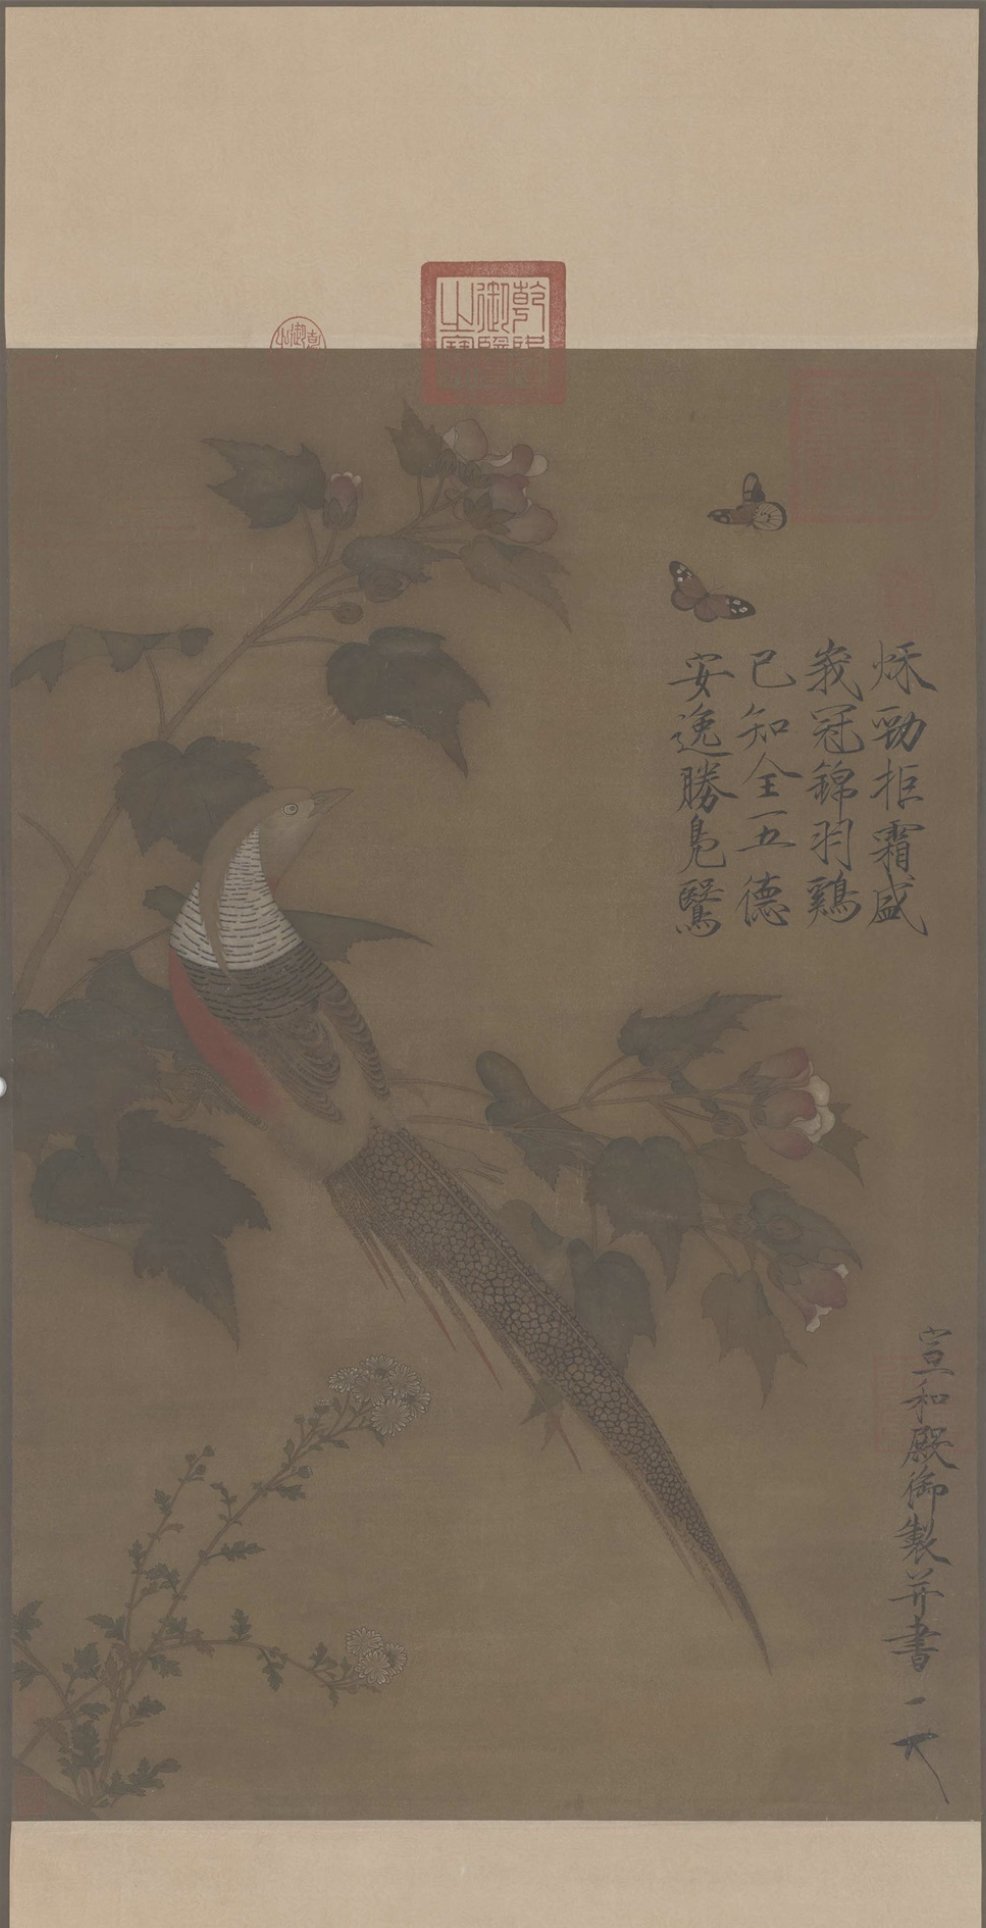 乾隆
御覽
之寶
秌勁拒霜盛
峩冠錦羽鷄
已知全五德
安逸勝鳧鷖
宣和殿御製并書